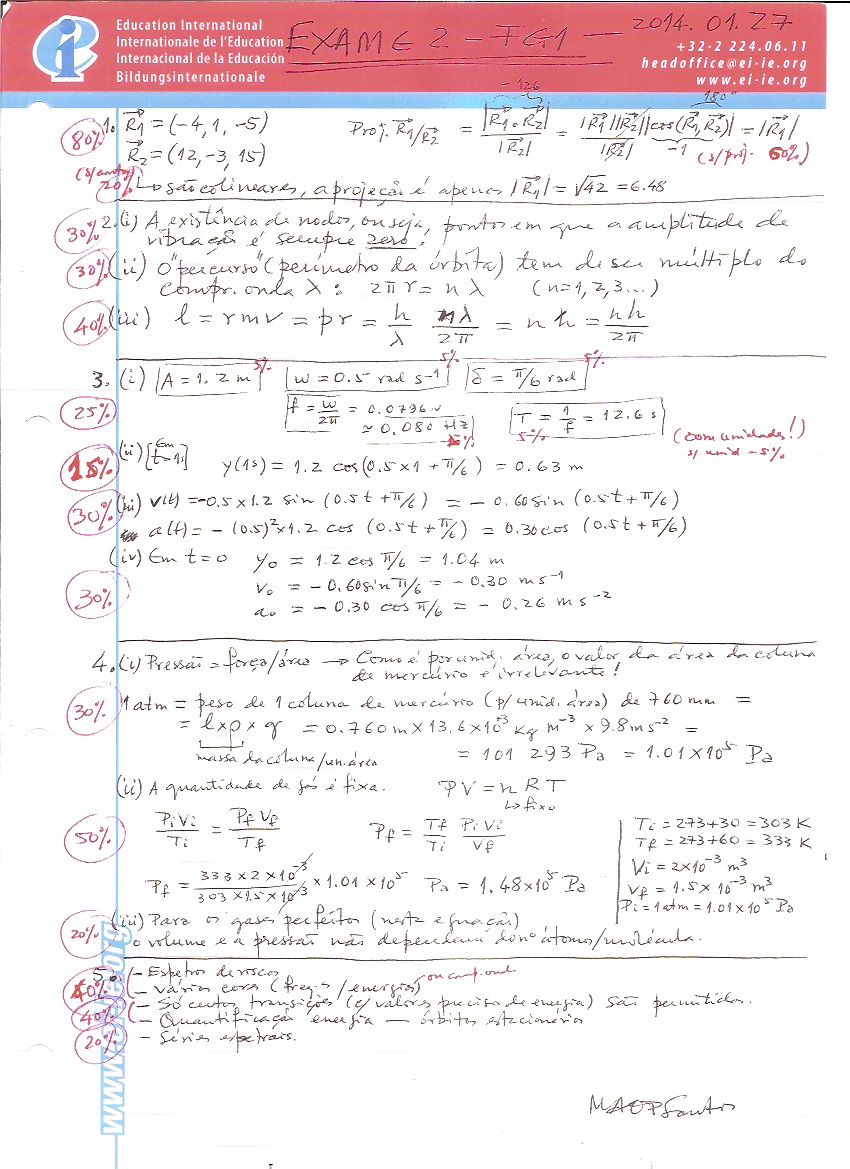 Education International
Internationale de l'Education
Internacional de la Educación
Bildungsinternationale
EXAME 2 - FG1 — 2014.01.27
+32-2 224.06.11
headoffice@ei-ie.org
www.ei-ie.org
80% 1. R1 = (-4, 1, -5) Proj. R1/R2 = |R1 · R2| / |R2| = |R1||R2||cos(R1,R2)| / |R2| = |R1|
-126
180°
-1
R2 = (12, -3, 15)
(s/ proj. 60%)
20% ↳ são colineares, a projeção é apenas |R1| = √42 = 6.48
30% 2. (i) A existência de nodos, ou seja, pontos em que a amplitude de
vibração é sempre zero!
30% (ii) O "percurso" (perímetro da órbita) tem de ser múltiplo do
compr. onda λ : 2πr = nλ (n=1,2,3...)
40% (iii) l = rmv = pr = h/λ nλ/2π = nħ = nh/2π
3. (i) A = 1.2 m 5% w = 0.5 rad s⁻¹ 5% δ = π/6 rad 5%
25% f = w/2π = 0.0796
≈ 0.080 Hz 5%
T = 1/f = 12.6 s 5%
(com unidades!)
s/ unid - 5%
15% (ii) [Em t=1s] y(1s) = 1.2 cos(0.5×1 + π/6) = 0.63 m
30% (iii) v(t) = -0.5×1.2 sin (0.5t + π/6) = -0.60 sin (0.5t + π/6)
a(t) = -(0.5)²×1.2 cos (0.5t + π/6) = 0.30 cos (0.5t + π/6)
(iv) Em t=0 y₀ = 1.2 cos π/6 = 1.04 m
30% v₀ = -0.60 sin π/6 = -0.30 m s⁻¹
a₀ = -0.30 cos π/6 = -0.26 m s⁻²
4. (i) Pressão = força/área → Como é por unid. área, o valor da área da coluna
de mercúrio é irrelevante!
30% 1 atm = peso de 1 coluna de mercúrio (p/ unid. área) de 760 mm =
= l×ρ×g = 0.760 m × 13.6×10⁺³ Kg m⁻³ × 9.8 ms⁻² =
massa da coluna/un. área
= 101 293 Pa = 1.01×10⁵ Pa
(ii) A quantidade de gás é fixa. PV = nRT
↳ fixo
50% PiVi/Ti = PfVf/Tf Pf = Tf/Ti PiVi/Vf
Ti = 273+30 = 303 K
Tf = 273+60 = 333 K
Vi = 2×10⁻³ m³
Vf = 1.5×10⁻³ m³
Pi = 1 atm = 1.01×10⁵ Pa
Pf = 333×2×10⁻³ / 303×1.5×10⁻³ × 1.01×10⁵ Pa = 1.48×10⁵ Pa
20% (iii) Para os gases perfeitos (nesta equação)
o volume e a pressão não dependem do nº átomos/molécula.
5. - Espetros de riscos
40% - Várias cores (freq.s/energias) ou comp. ond.
- Só certas transições (c/ valores precisos de energia) são permitidas.
40% - Quantificação energia — órbitas estacionárias
20% - Séries espetrais.
www.ei-ie.org
MAOPSantos